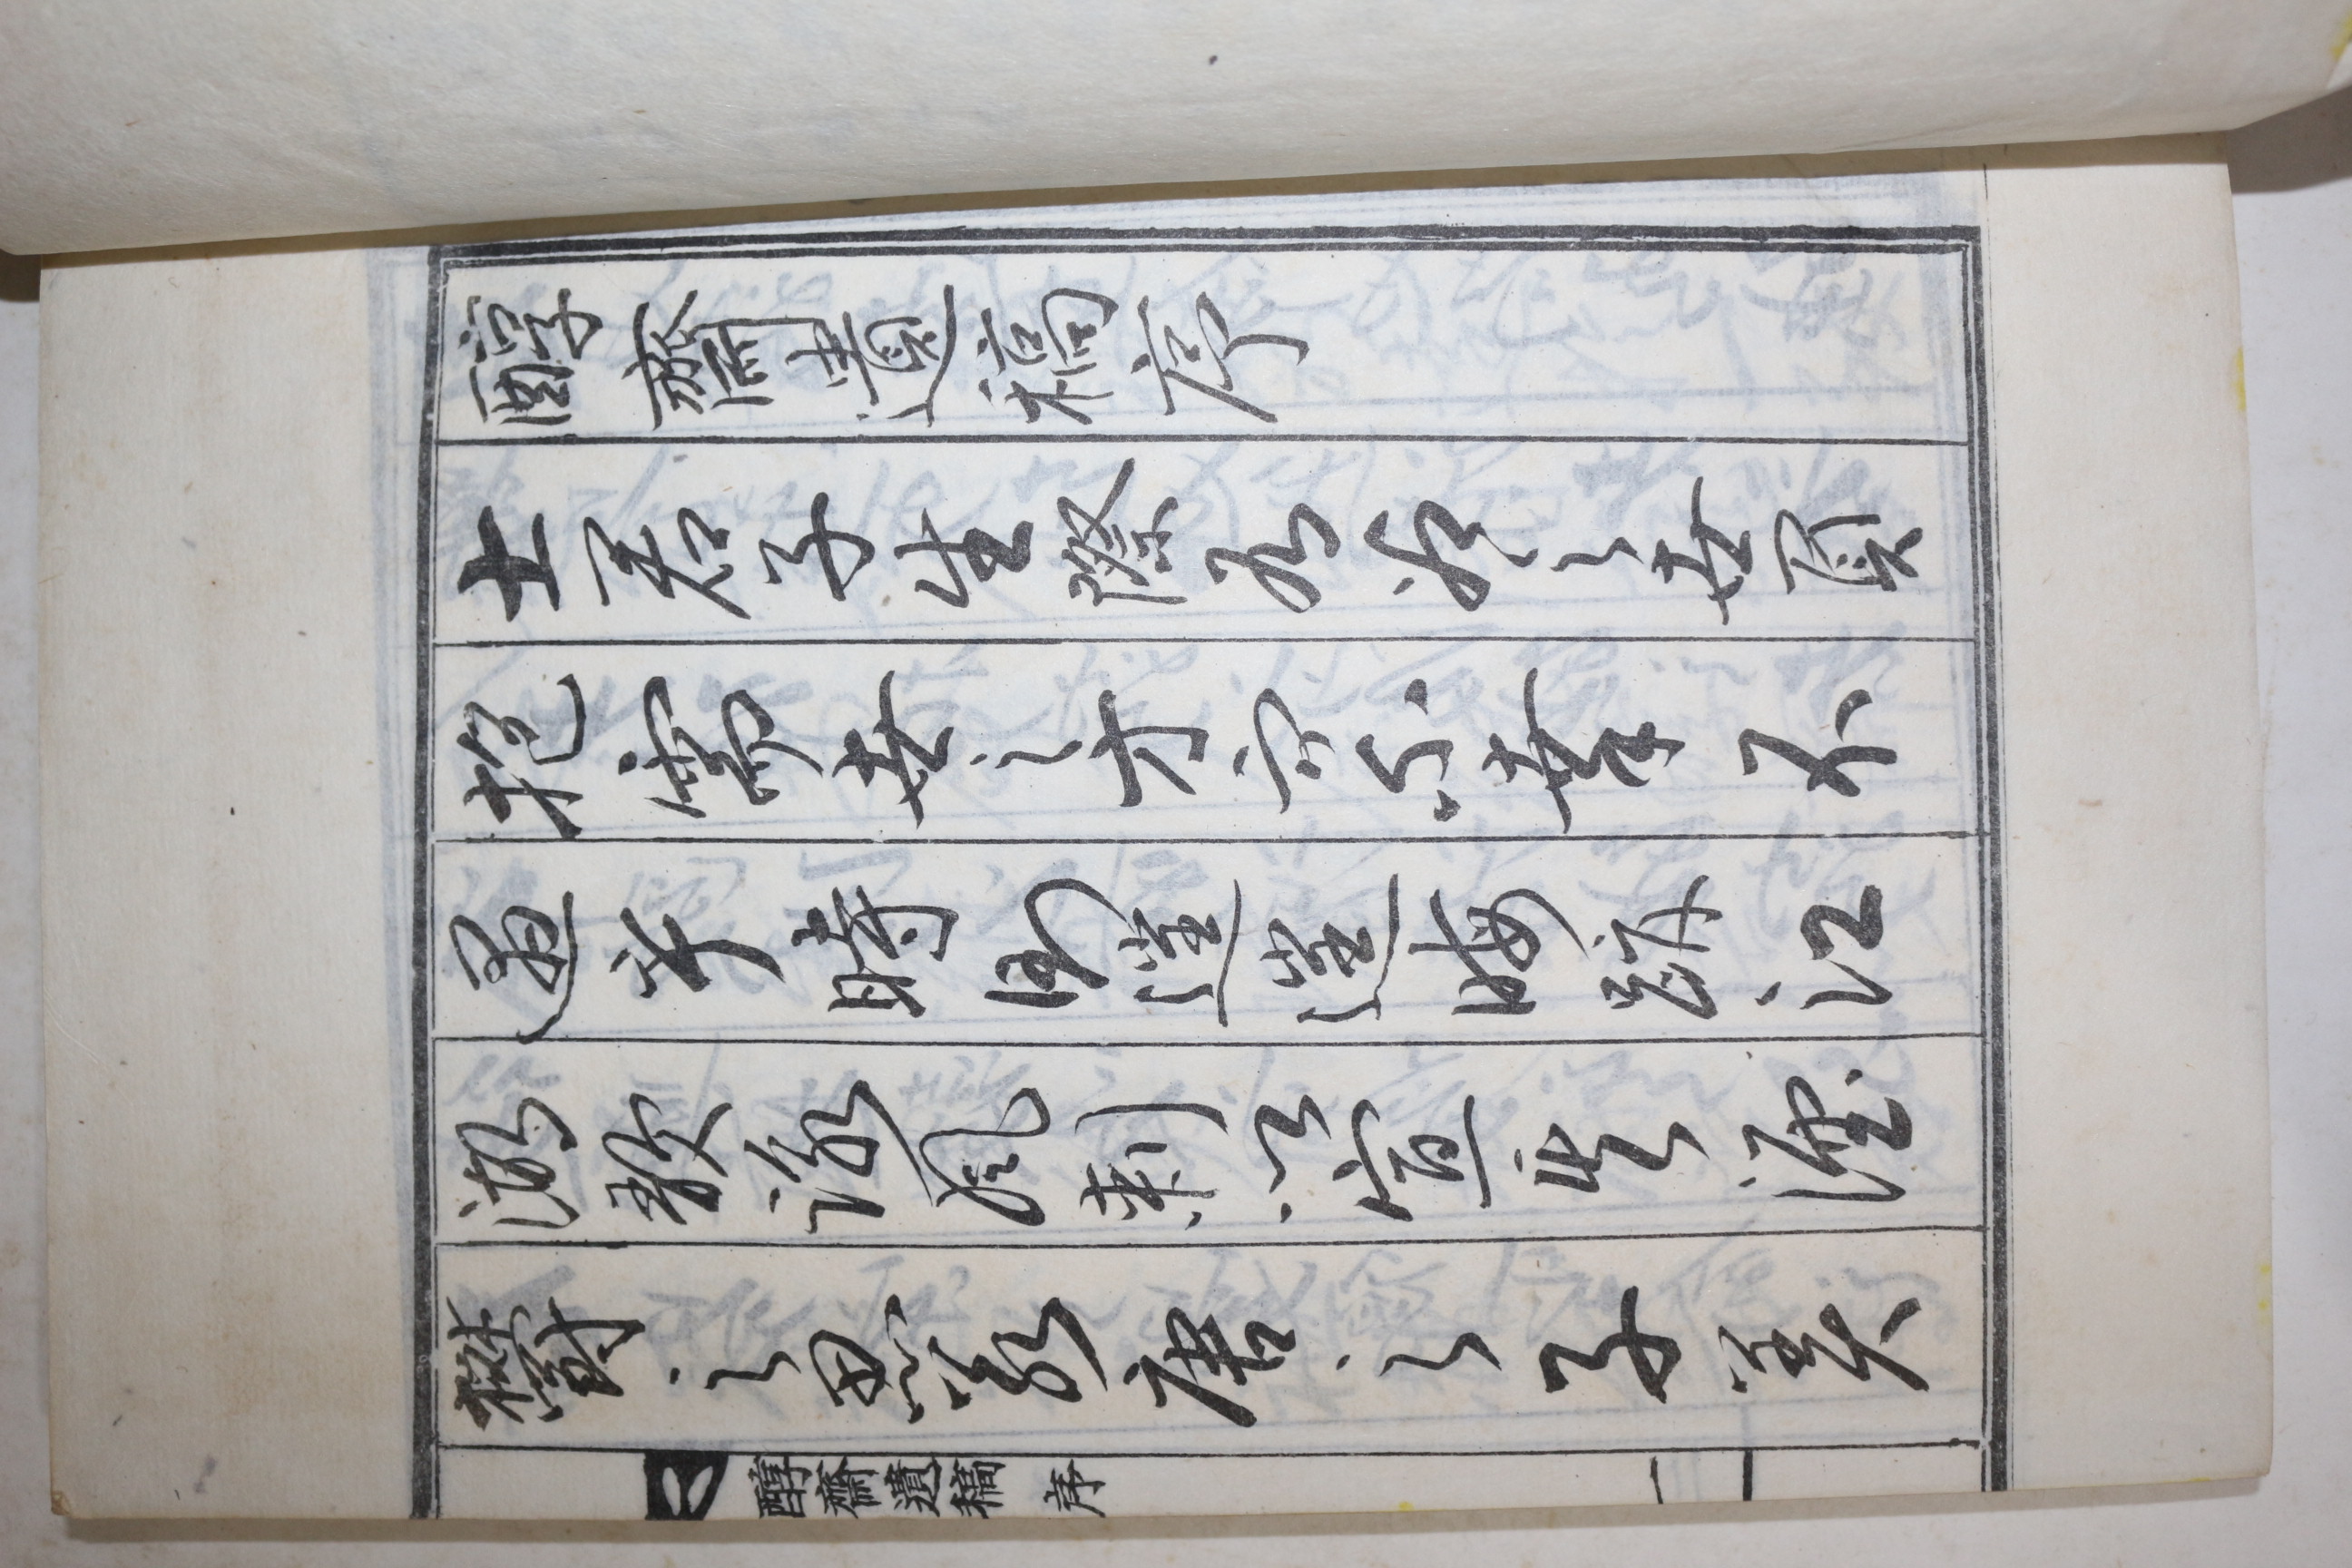 醇齋遺稿序
士君子生際有為之世負
抱需世之才而不幸不
遇乎時則遑遑晦跡江
湖歌詠風刺以宣其湮
鬱之思若唐之子美
醇齋遺稿 序 一